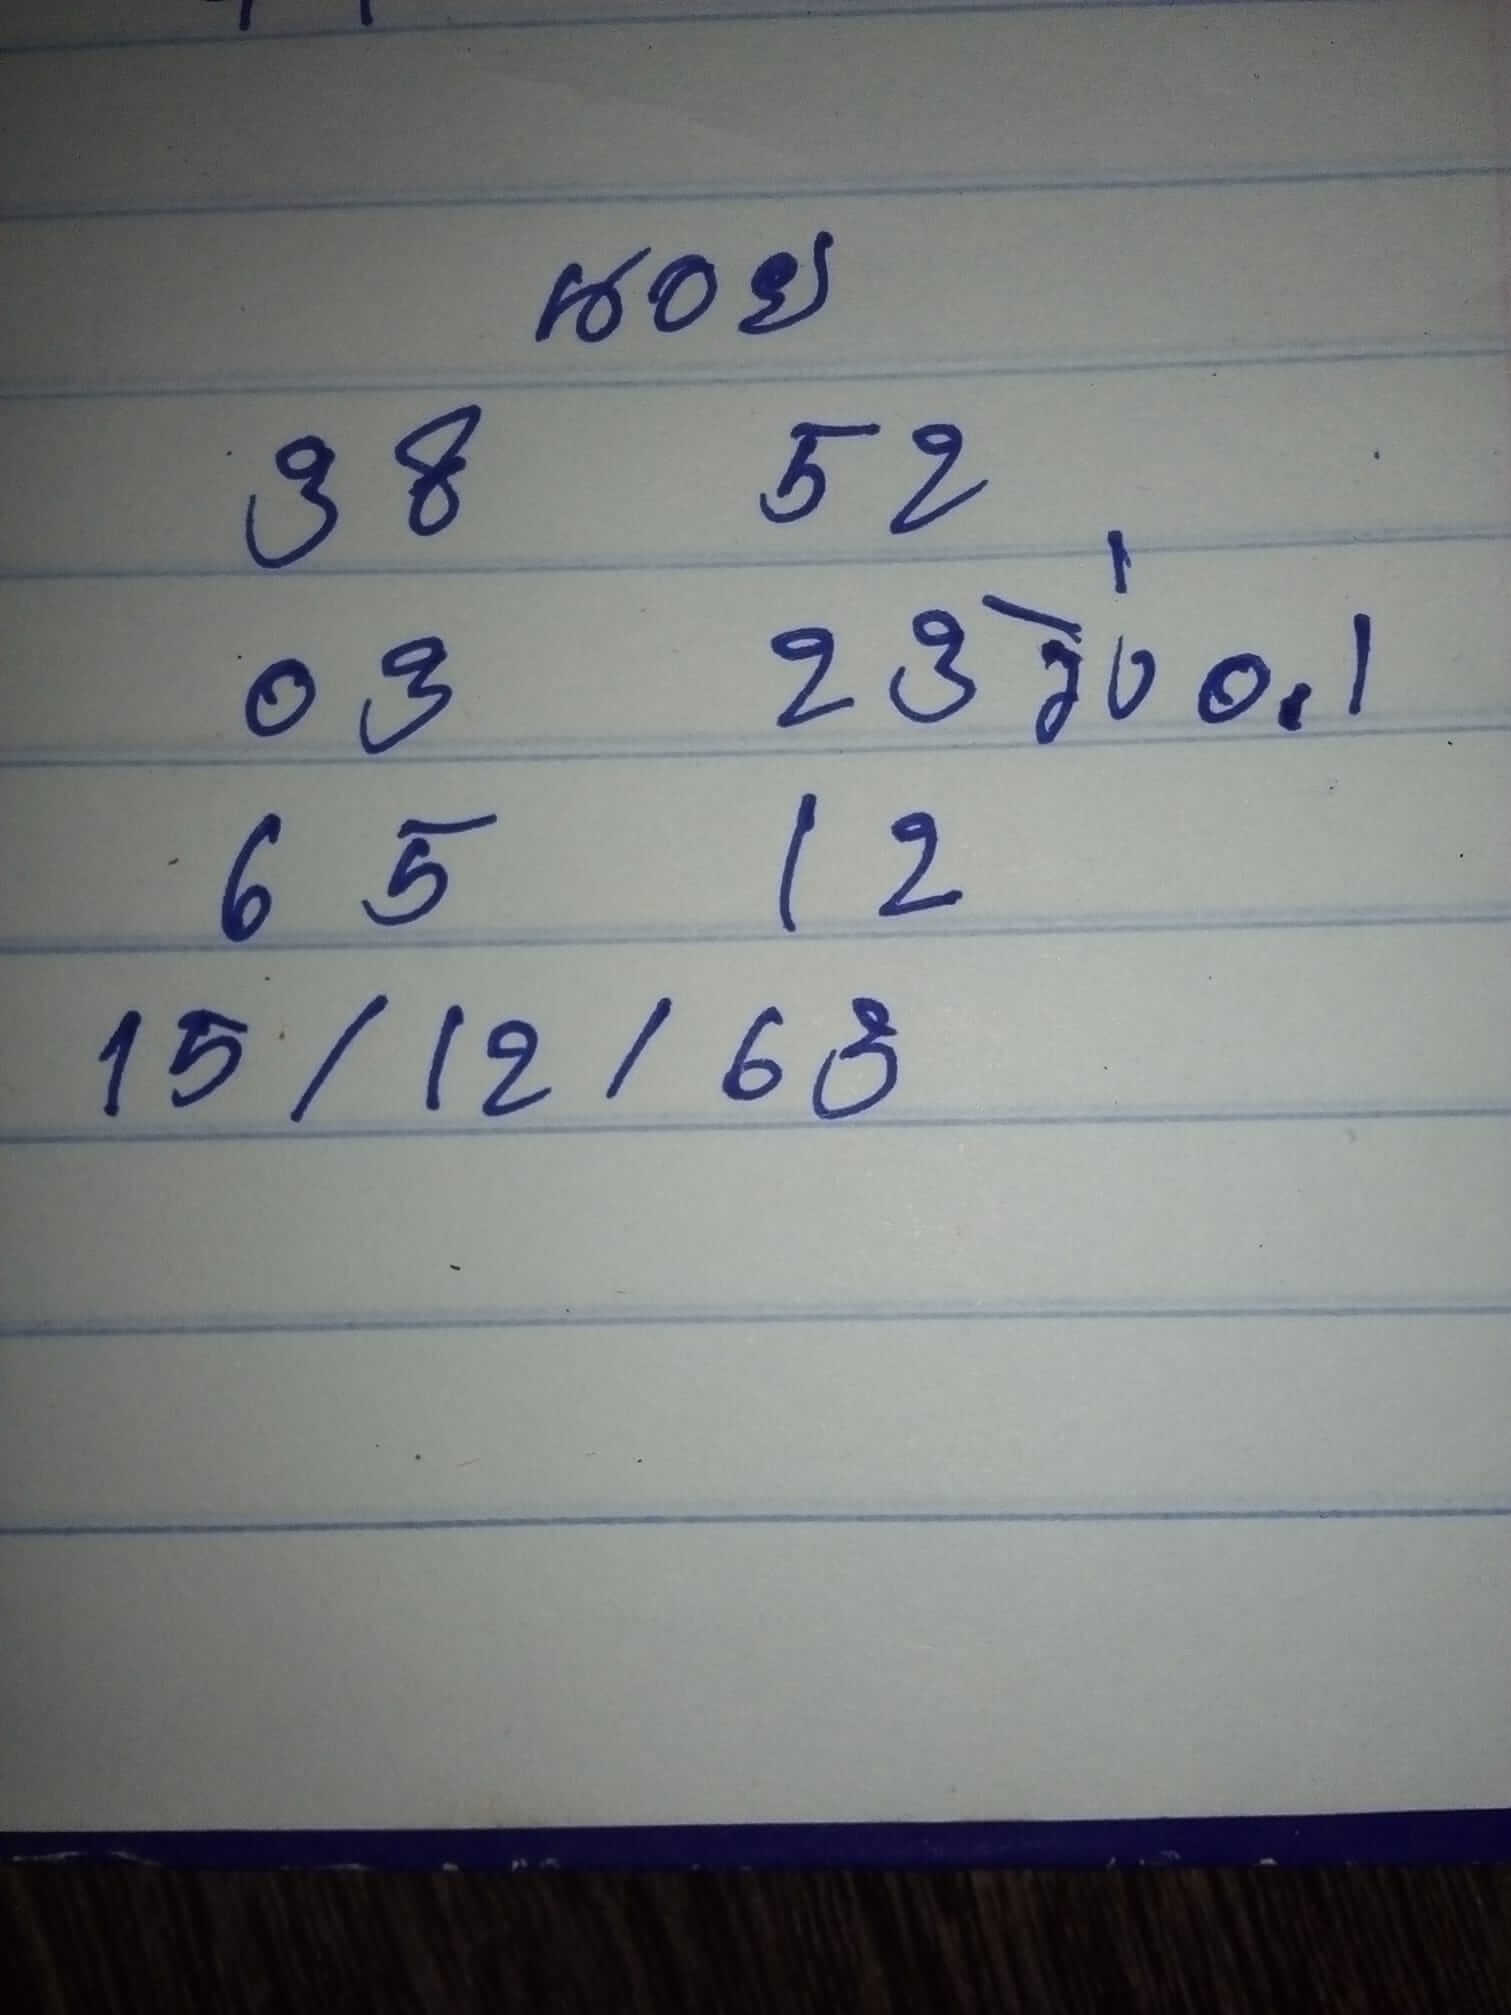 ฮานอย
38 52
03 23 วิ่ง 0.1
65 12
15/12/63